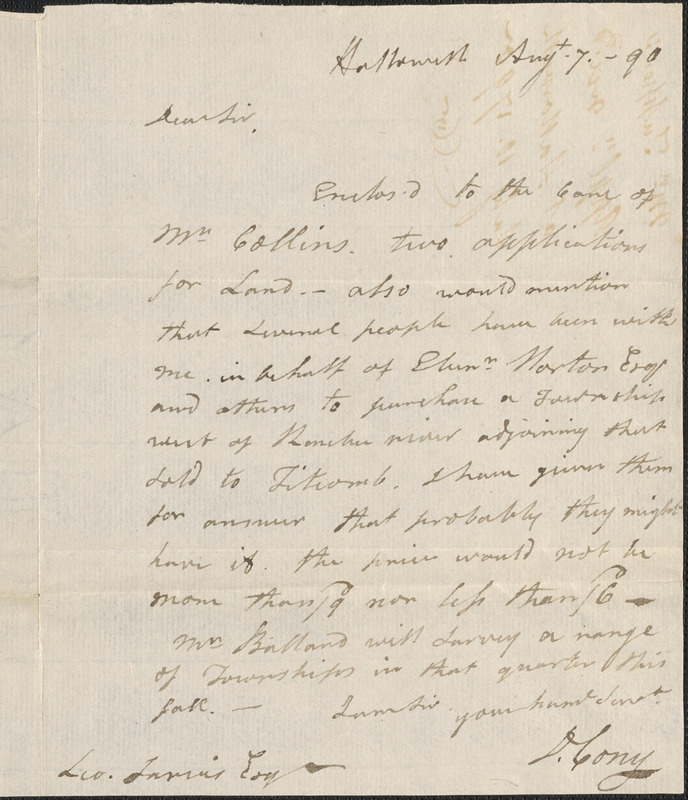 Hallowell Augt. 7. - 90
Dear Sir,
Enclos'd to the Care of
Mr. Collins. two applications
for Land. - also would mention
that several people have been with
me. in behalf of Ebenr. Norton Esqr
and others to purchase a Township
west of river adjoining that
sold to Titcomb. I have given them
for answer that probably they might
have it. the price would not be
more than /9 nor less than /6 —
Mr. Ballard will survey a range
of Townships in that quarter this
fall. — I am Sir your humle. Servt.
D. Cony
Leo. Jarvis Esqr